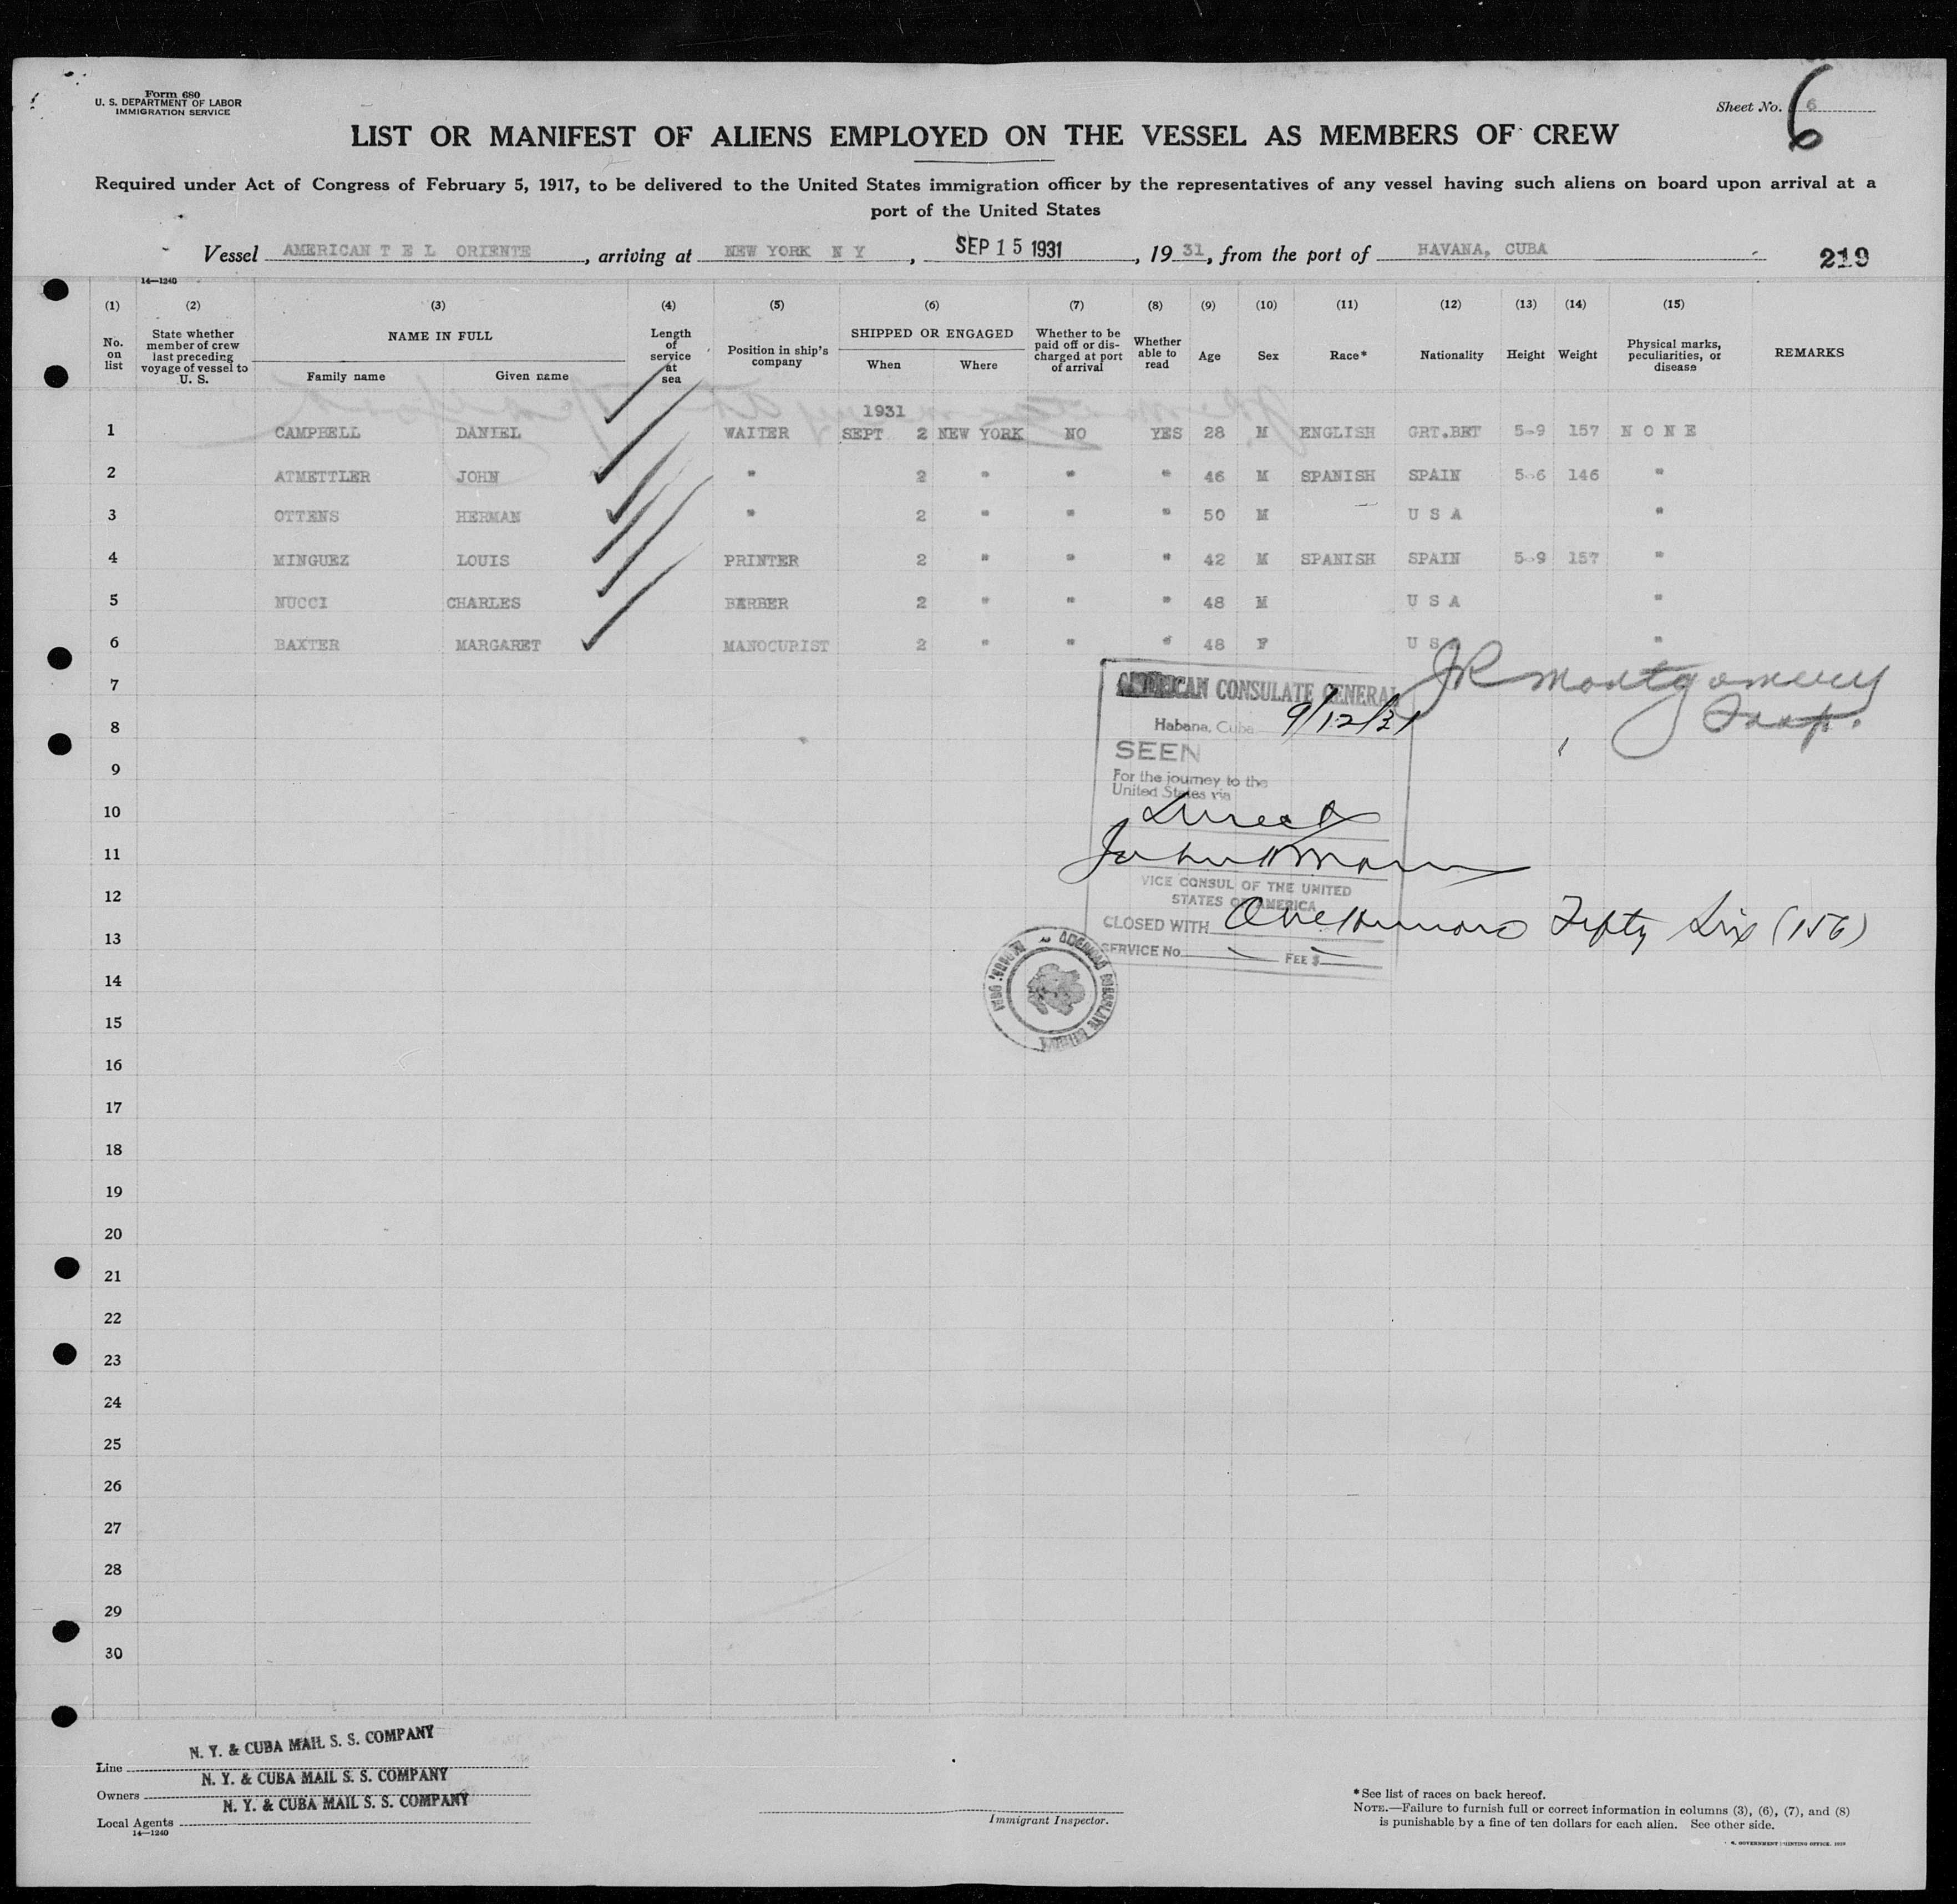 Form 680
U. S. DEPARTMENT OF LABOR
IMMIGRATION SERVICE
Sheet No. 6
6
LIST OR MANIFEST OF ALIENS EMPLOYED ON THE VESSEL AS MEMBERS OF CREW
Required under Act of Congress of February 5, 1917, to be delivered to the United States immigration officer by the representatives of any vessel having such aliens on board upon arrival at a
port of the United States
Vessel AMERICAN T E L ORIENTE, arriving at NEW YORK N Y, SEP 15 1931, 1931, from the port of HAVANA, CUBA
219
14—1240
(1) (2) (3) (4) (5) (6) (7) (8) (9) (10) (11) (12) (13) (14) (15)
No. on list
State whether member of crew last preceding voyage of vessel to U. S.
NAME IN FULL
Family name
Given name
Length of service at sea
Position in ship's company
SHIPPED OR ENGAGED
When
Where
Whether to be paid off or discharged at port of arrival
Whether able to read
Age
Sex
Race*
Nationality
Height
Weight
Physical marks, peculiarities, or disease
REMARKS
1931
1 CAMPBELL DANIEL WAITER SEPT 2 NEW YORK NO YES 28 M ENGLISH GRT.BET 5-9 157 N O N E
2 ATMETTLER JOHN " 2 " " " 46 M SPANISH SPAIN 5-6 146 "
3 OTTENS HERMAN " 2 " " " 50 M — U S A "
4 MINGUEZ LOUIS PRINTER 2 " " " 42 M SPANISH SPAIN 5-9 157 "
5 NUCCI CHARLES BERBER 2 " " " 48 M U S A "
6 BAXTER MARGARET MANOCURIST 2 " " " 48 F U S A "
7
8
9
10
11
12
13
14
15
16
17
18
19
20
21
22
23
24
25
26
27
28
29
30
JR Montgomery
Insp.
AMERICAN CONSULATE GENERAL
Habana, Cuba 9/12/31
SEEN
For the journey to the
United States via
Direct
VICE CONSUL OF THE UNITED
STATES OF AMERICA
CLOSED WITH One Hundred Fifty Six (156)
SERVICE No. FEE $
AMERICAN CONSULATE GENERAL
N. Y. & CUBA MAIL S. S. COMPANY
Line
N. Y. & CUBA MAIL S. S. COMPANY
Owners
N. Y. & CUBA MAIL S. S. COMPANY
Local Agents
14—1240
Immigrant Inspector.
*See list of races on back hereof.
NOTE.—Failure to furnish full or correct information in columns (3), (6), (7), and (8)
is punishable by a fine of ten dollars for each alien. See other side.